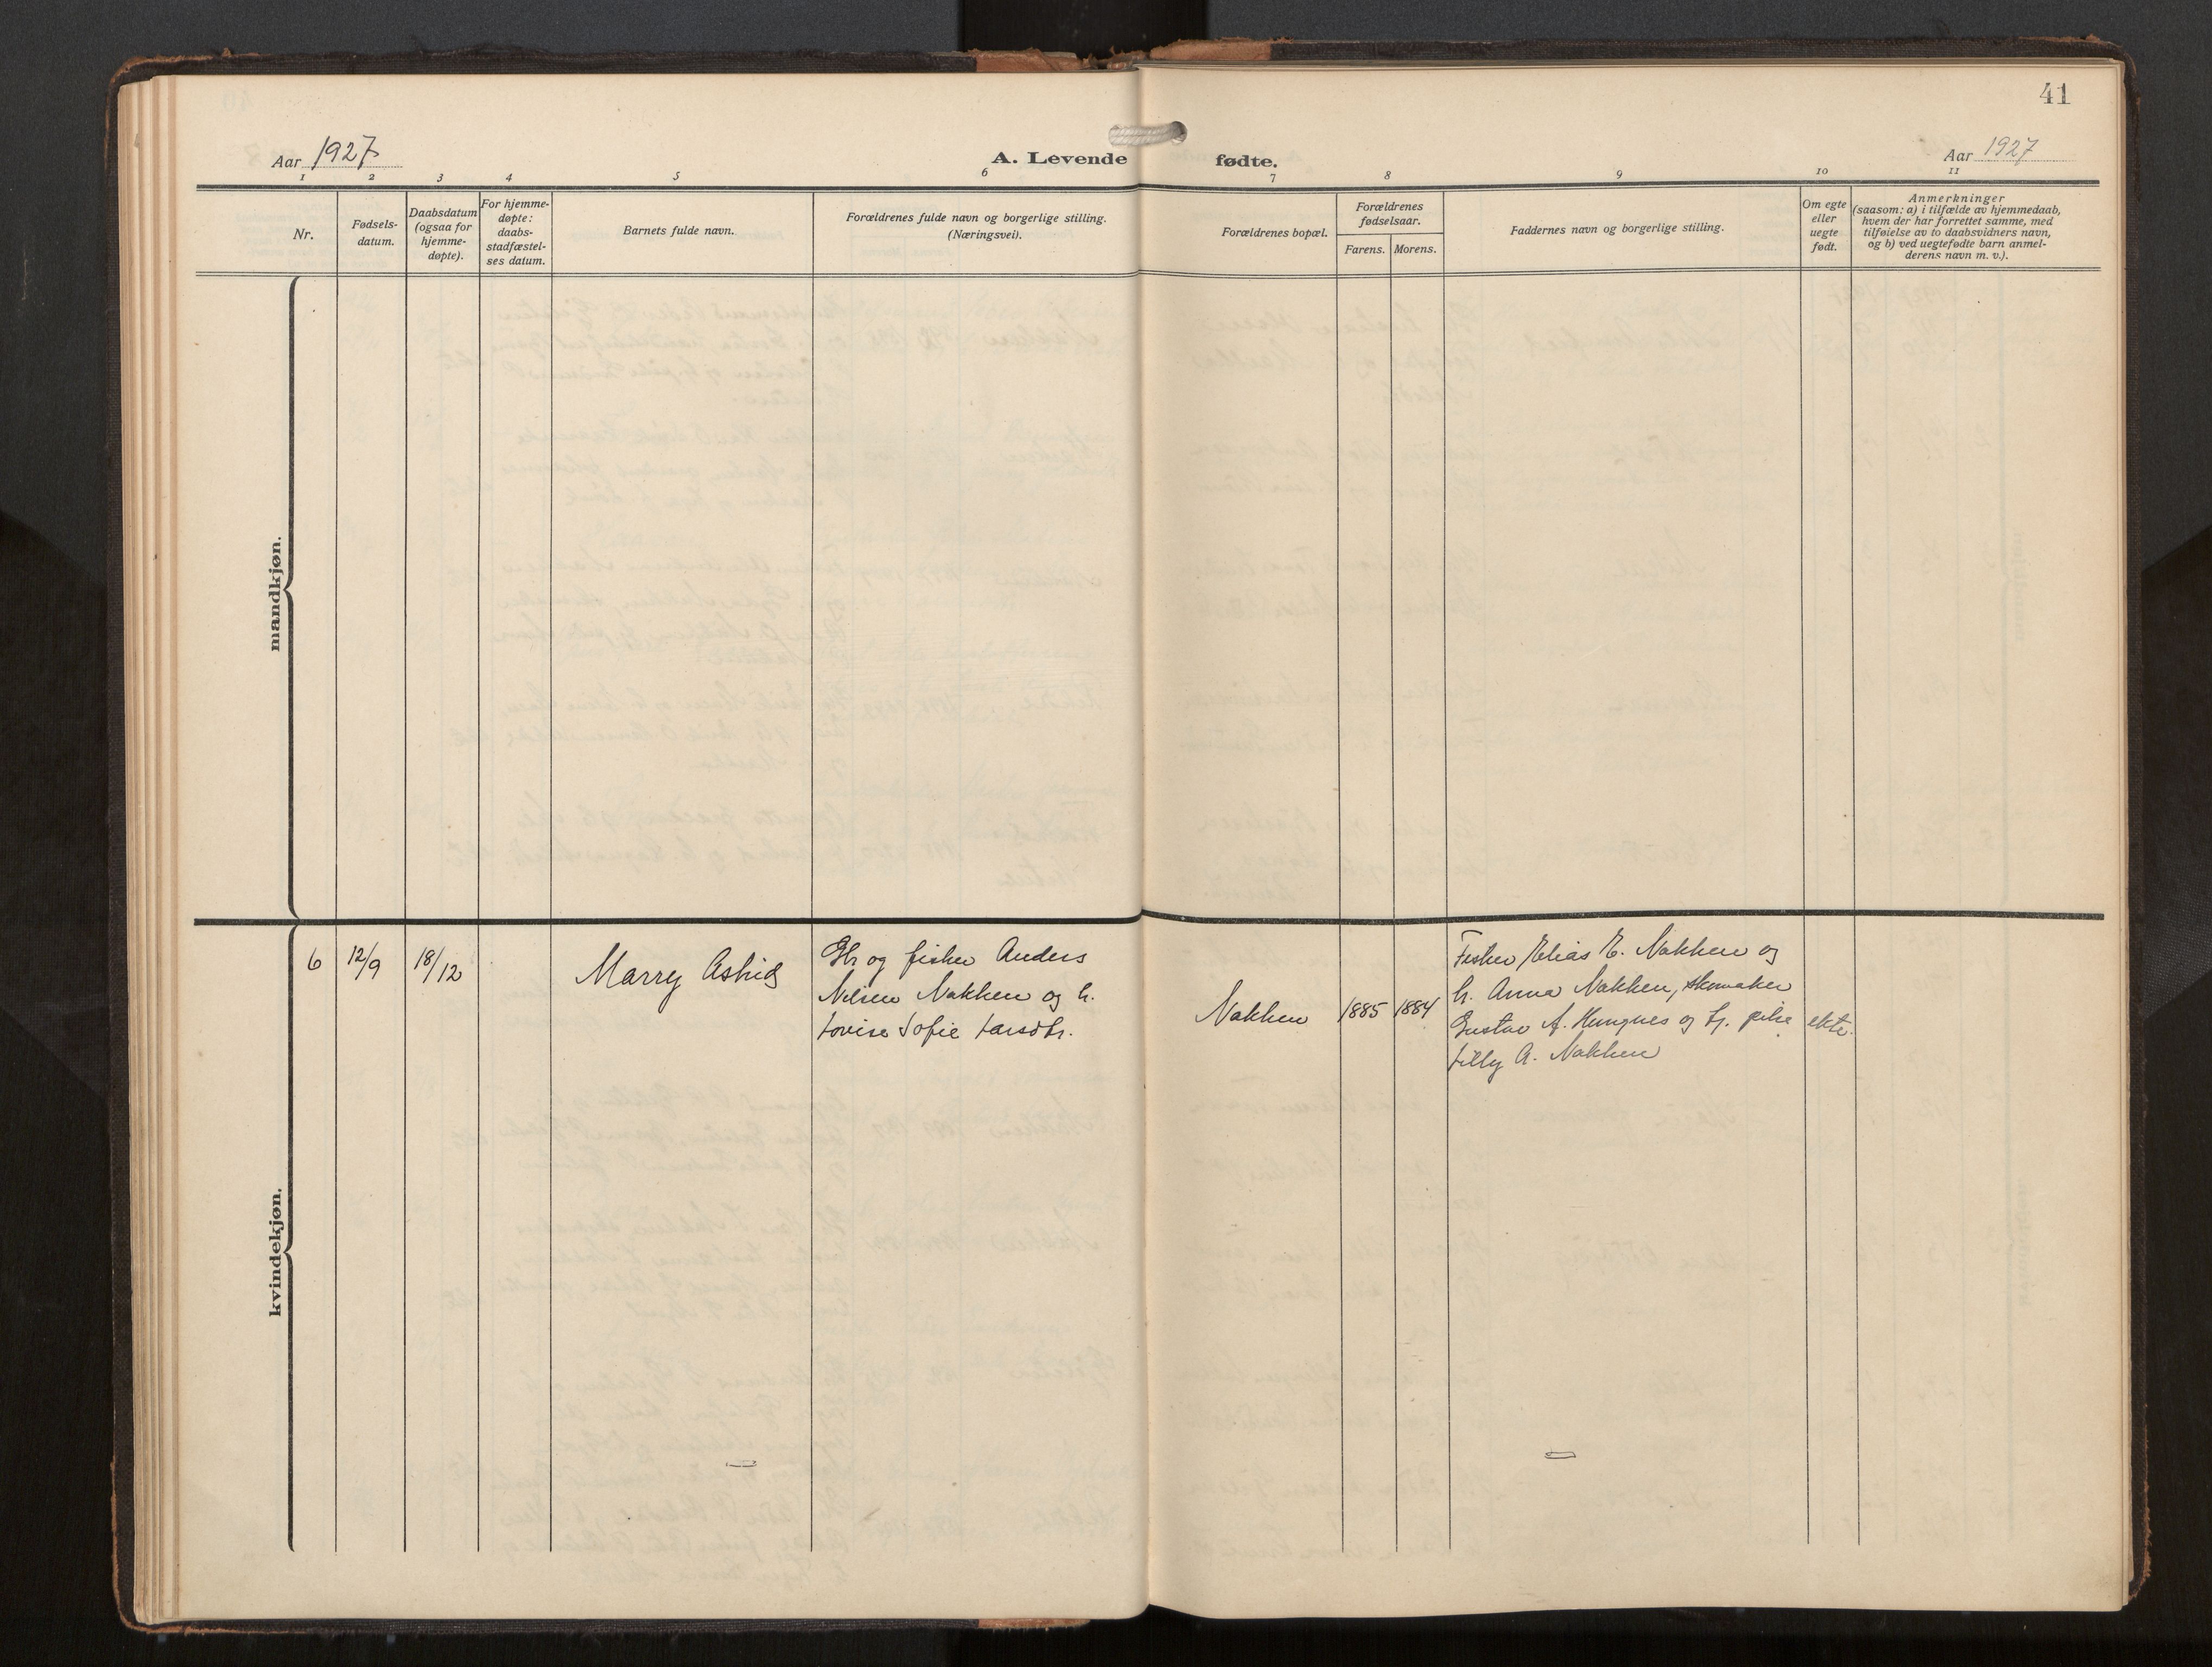 41
Aar 1927
A. Levende fødte.
Aar 1927
1 2 3 4 5 6 7 8 9 10 11
Nr.
Fødsels-
datum.
Daabsdatum
(ogsaa for
hjemme-
døpte).
For hjemme-
døpte:
daabs-
stadfæstel-
ses datum.
Barnets fulde navn.
Forældrenes fulde navn og borgerlige stilling.
(Næringsvei).
Forældrenes bopæl.
Forældrenes
fødselsaar.
Farens. Morens.
Faddernes navn og borgerlige stilling.
Om egte
eller
uegte
født.
Anmerkninger
(saasom: a) i tilfælde av hjemmedaab,
hvem der har forrettet samme, med
tilføielse av to daabsvidners navn,
og b) ved uegtefødte barn anmel-
derens navn m. v.).
mandkjøn.
kvindekjøn.
6
12/9
18/12
Marry Astrid
Gbr og fisker Anders
Nilsen Nakken og h.
Lovise Sofie Larsdtr.
Nakken
1885
1884
Fisker Elias E. Nakken og
h. Anna Nakken, skomaker
Gustav A. Hungnes og Lj. pike
Lilly A. Nakken
ekte.